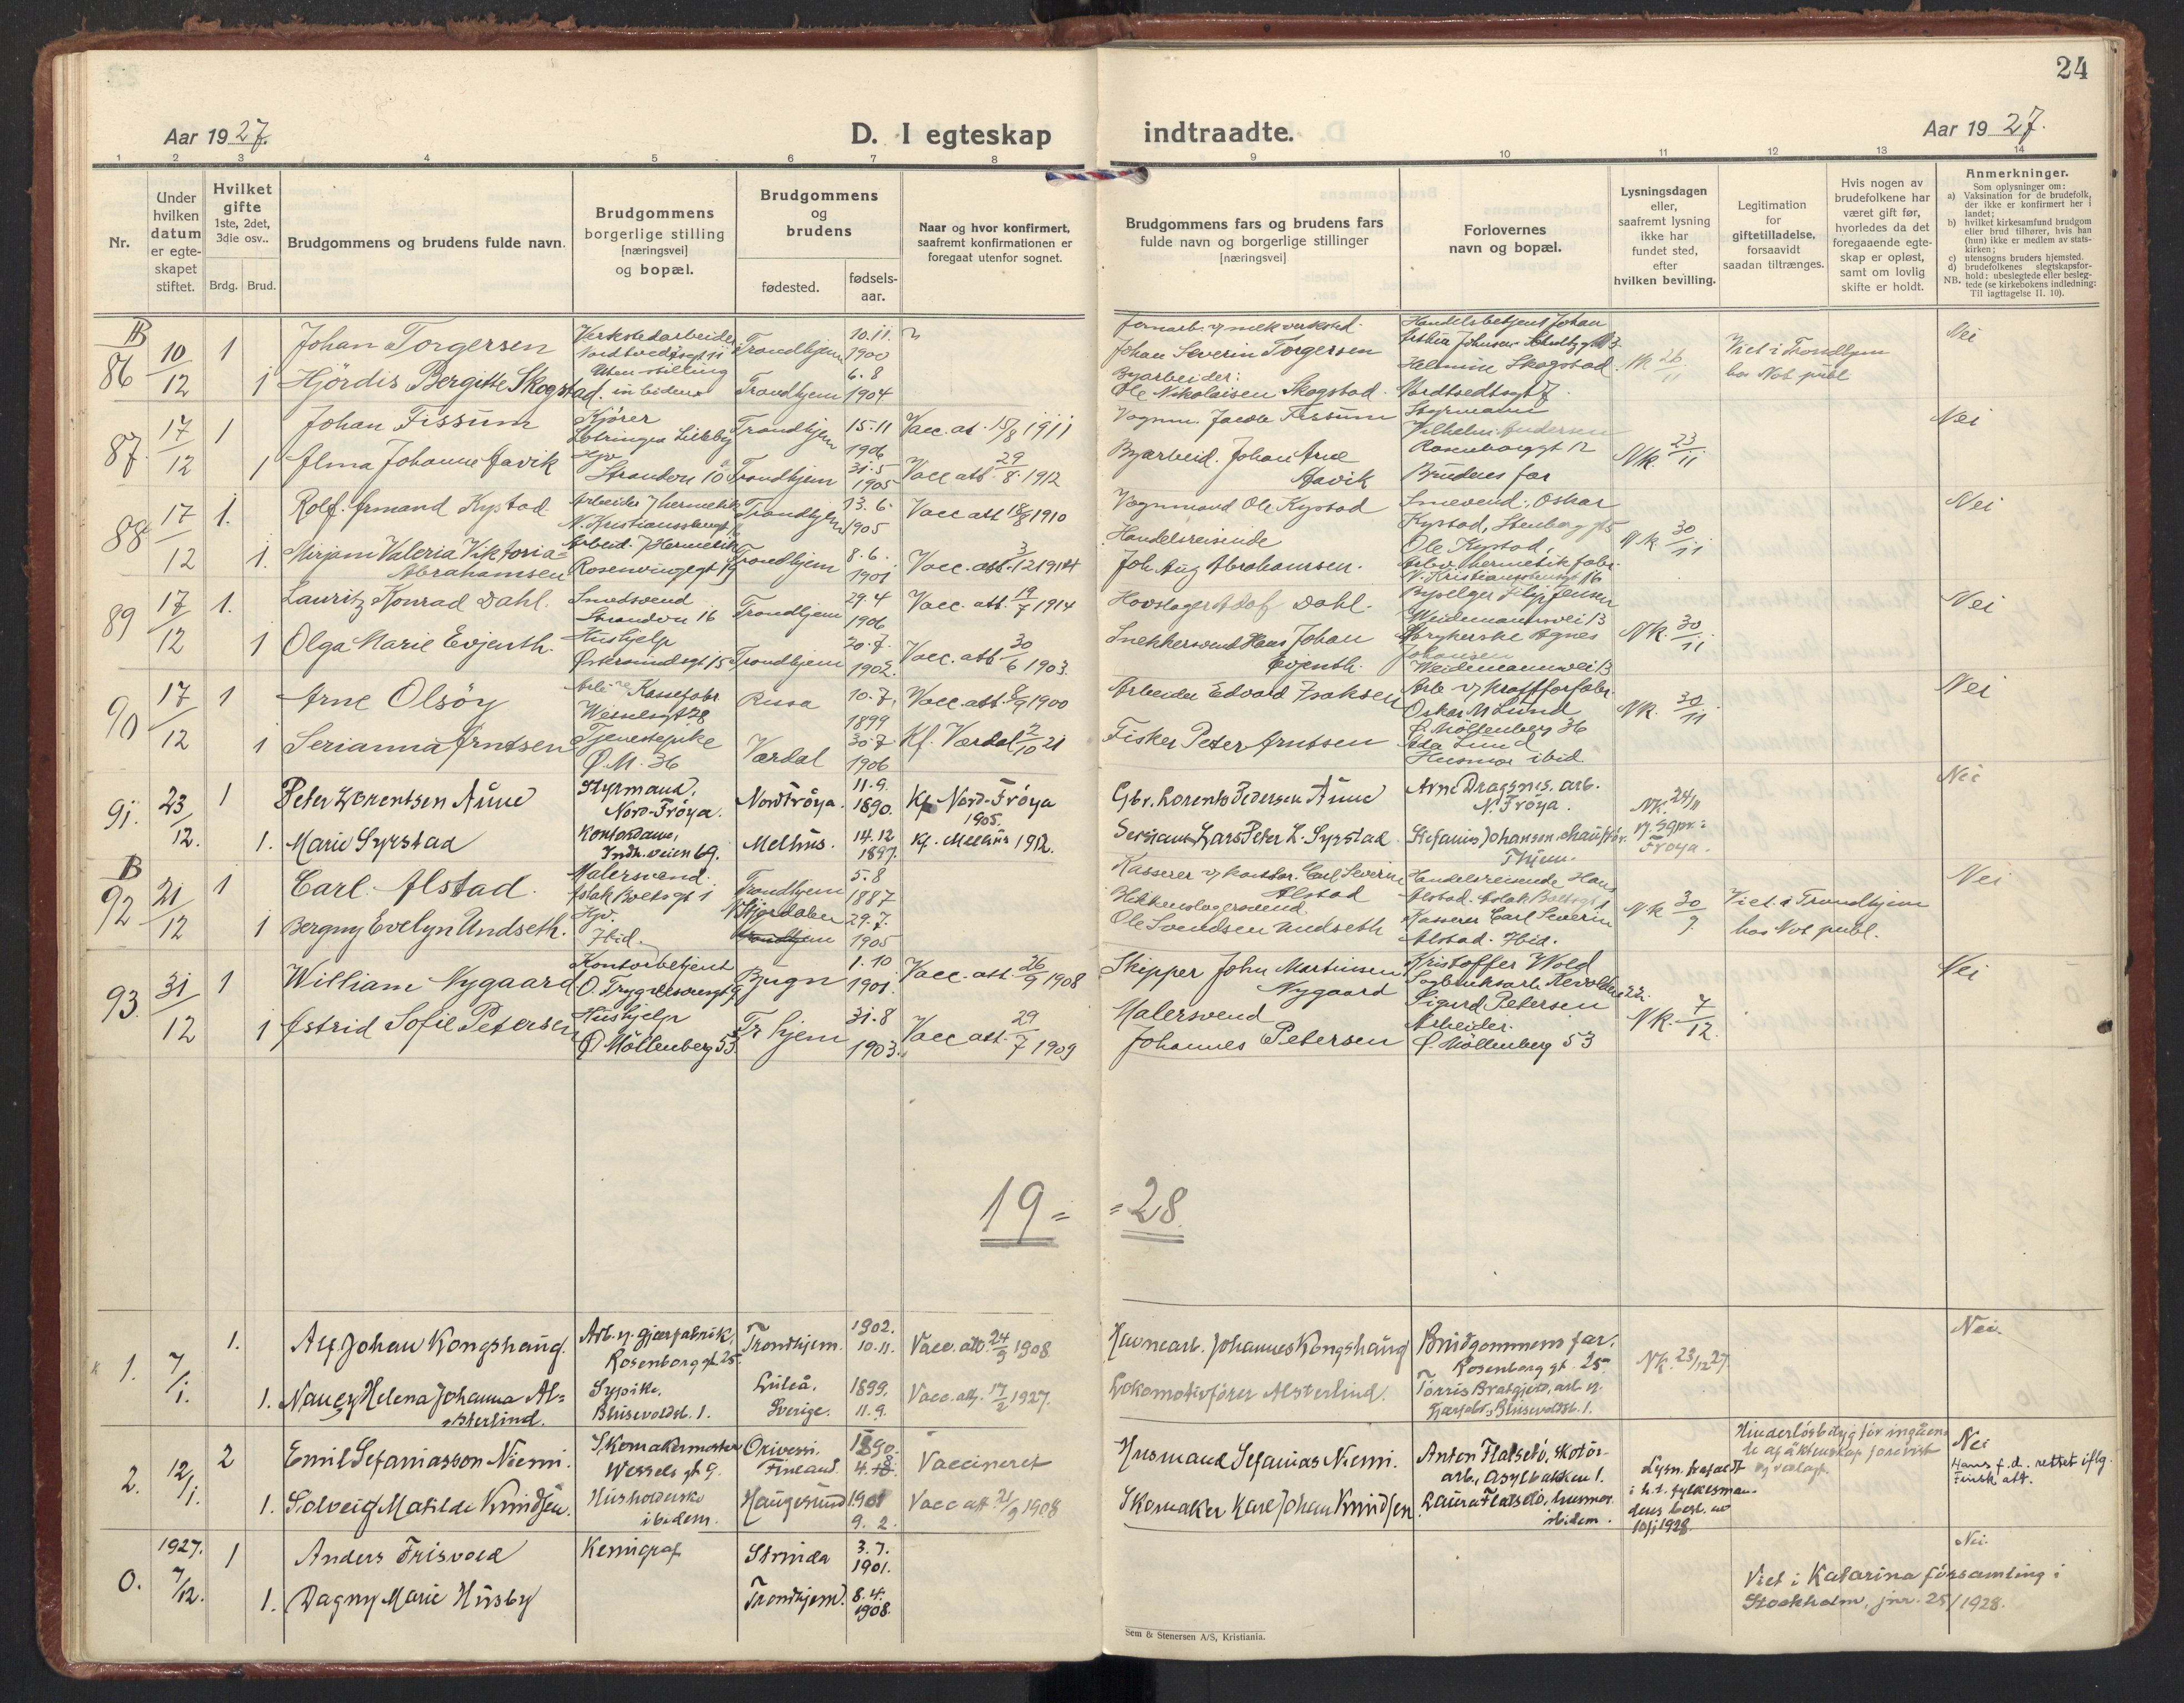 24
Aar 1927.
D. I egteskap indtraadte.
Aar 1927.
1 2 3 4 5 6 7 8 9 10 11 12 13 14
Nr.
Under hvilken datum er egte-skapet stiftet.
Hvilket gifte 1ste, 2det, 3die osv..
Brdg. Brud.
Brudgommens og brudens fulde navn.
Brudgommens borgerlige stilling [næringsvei] og bopæl.
Brudgommens og brudens
fødested.
fødsels-aar.
Naar og hvor konfirmert, saafremt konfirmationen er foregaat utenfor sognet.
Brudgommens fars og brudens fars fulde navn og borgerlige stillinger [næringsvei]
Forlovernes navn og bopæl.
Lysningsdagen eller, saafremt lysning ikke har fundet sted, efter hvilken bevilling.
Legitimation for giftetilladelse, forsaavidt saadan tiltrænges.
Hvis nogen av brudefolkene har været gift før, hvorledes da det foregaaende egte-skap er opløst, samt om lovlig skifte er holdt.
Anmerkninger.
Som oplysninger om:
a) Vaksination for de brudefolk, der ikke er konfirmert her i landet;
b) hvilket kirkesamfund brudgom eller brud tilhører, hvis han (hun) ikke er medlem av stats-kirken;
c) utensogns bruders hjemsted.
d) brudefolkenes slegtskapsfor-hold: ubeslegtede eller besleg-tede (se kirkebokens indledning:
NB. Til iagttagelse II. 10).
B
86 10/12 1 Johan Torgersen Verkstedarbeider Trondhjem 10.11. 1900
Johan Severin Torgersen Handelsbetjent Johan
26/11 Viet i Trondhjem hos Not publ Nei
1 Hjördis Bergitte Skogstad. Uten stilling Trondhjem 6.8 1904
Byarbeider: Ole Nikolaisen Skogstad. Helmine Skogstad.
87. 17/12 1 Johan Tissum Kjörer Trondhjem 15.11 1906 Vacc. at. 15/8 1911
Vognm. Jacob Tissum Styrmann Vilhelm Andersen Rosenborggt 12 NK. 23/11 Nei
1 Alma Johanne Aavik Hpv. Strandvn 10 Trondhjem 31.5 1905 Vacc att. 29/8 1912
Byarbeid. Johan Arne Aavik Brudens far
88 17/12 1. Rolf Armand Kystad Trondhjem 13.6. 1905 Vacc att 18/8 1910
Vognmand Ole Kystad Smedsvend: Oskar Kystad, Stenberg gt 5 NK 30/11 Nei
1. Mirjam Valeria Viktoria= Abrahamsen Rosenvingegt 19 Trondhjem 8.6. 1901 Vacc. att. 3/12 1914
Handelsreisende Joh. Aug Abrahamsen. Ole Kystad, Arbv. hermetikfabr.
89 17/12 1. Lauritz Konrad Dahl. Smedsvend Strandvn 16 Trondhjem 29.4 1906 Vacc. att. 19/7 1914
Hovslager Adolf Dahl. Weidemannsvei 13 NK. 30/11 Nei
1 Olga Marie Evjenth. Hushjelp Trondhjem 20.7. 1902. Vacc. att 30/6 1903.
Snekkersvend Hans Johan Evjenth. Agnes Johansen Weidemannsvei 13
90 17/12 1 Arne Olsöy Kassefabr Rissa 10.7. 1899 Vacc. att. 8/9 1900
Arbeider Edvard Isaksen Arb. v/ kraftforfabr. Oskar M Lund Ö. Möllenberg 36 NK. 30/11 Nei
1 Serianna Arntsen Tjenestepike Ö. M. 36 Værdal 30.7 1906 Kf. Værdal 2/10 21
Fisker Peter Arntsen Lund Husmor ibid
91. 23/12. 1 Peter Lorentsen Aune Styrmand, Nord-Fröya. Nordfröya. 11.9. 1890. Kf Nord-Fröya 1905.
Gbr. Lorents Pedersen Aune Arne Dragsnes. arb. N. Fröya. NK. 24/11 Fröya. Nei
1. Marie Syrstad Kontordame, Indh.veien 69. Melhus. 14.12 1897. Kf. Melhus 1912.
Sersjant Lars Peter L. Syrstad Stefanus Johansen, chaufför. Thjem.
B
92 21/12 1 Carl Alstad. Malersvend. Aslak Boltsgt 1 Trondhjem 5.8 1887
Kasserer v/ kontor. Carl Severin Alstad Handelsreisende Hans Alstad. Aslak Boltsgt 1 NK 30/9. Viet i Trondhjem hos Not publ. Nei
1 Bergny Evelyn Undseth. Hpv. Ibid. Stjördalen 29.7. 1905
Blikkenslagersvend Ole Svendsen Undseth Kasserer Carl Severin Alstad. Ibid.
93. 31/12 1 William Nygaard Kontorbetjent Bjugn 1.10 1901. Vacc. att. 26/9 1908
Skipper John Martinsen Nygaard Kristoffer Wold NK. 7/12. Nei
1 Astrid Sofie Petersen Hushjelp Ö Möllenberg 53 Tr hjem 31.8 1903. Vacc att. 29/7 1909
Malersvend Johannes Petersen Sigurd Petersen Arbeider. Ö. Möllenberg 53
19= =28.
1. 7/1. 1. Alf Johan Kongshaug. Arb. v. gjærfabrik, Rosenborg gt. 25 Trondhjem. 1902. 10.11. Vacc. att. 24/9 1908
Havnearb. Johannes Kongshaug Brudgommens far. Rosenborg gt. 25 NK. 23/12 27 Nei.
1. Nancy Helena Johanna Al=sterlind. Sypike, Luleå, Sverige. 1899. 11.9. Vacc. att. 17/2 1927.
Lokomotivförer Alsterlind. Torris Bratgjerd, arb. v.
2. 12/1. 2 Emil Sefaniasson Niemi. Skomakermester Wessels gt 9. Orivessi. Finland 1890. Vaccineret
Husmand Sefanias Niemi. Anton Flatseth, skotöiarb., Asylbakken 1. Nei
Hans f.d. rettet iflg. Finsk att.
1. Solveig Matilde Knudsen. Husholderske ibidem. Haugesund 1901 9.2. Vacc att 21/9 1908
Skomaker Karl Johan Knudsen Laura Flatseth, husmor ibidem.
0. 1927. 7/12. 1 Anders Trisvold Kemigraf Strinda 3.7. 1901. Nei.
1. Dagny Marie Husby Trondhjem. 8.4. 1908.
Viet i Katarina församling i Stockholm, jnr. 25/1928.
Sem & Stenersen A/S, Kristiania.